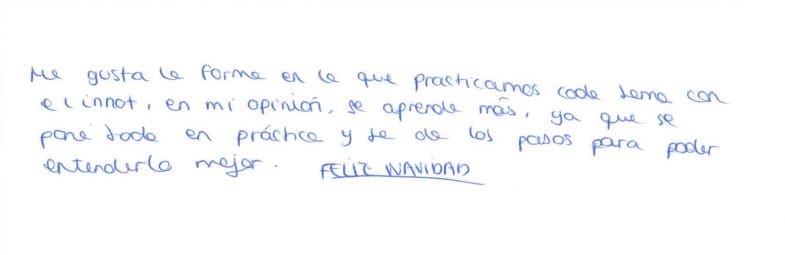 Me gusta la forma en la que practicamos cada tema con
el innot, en mi opinión, se aprende más, ya que se
pone todo en práctica y te da los pasos para poder
entenderlo mejor. FELIZ NAVIDAD